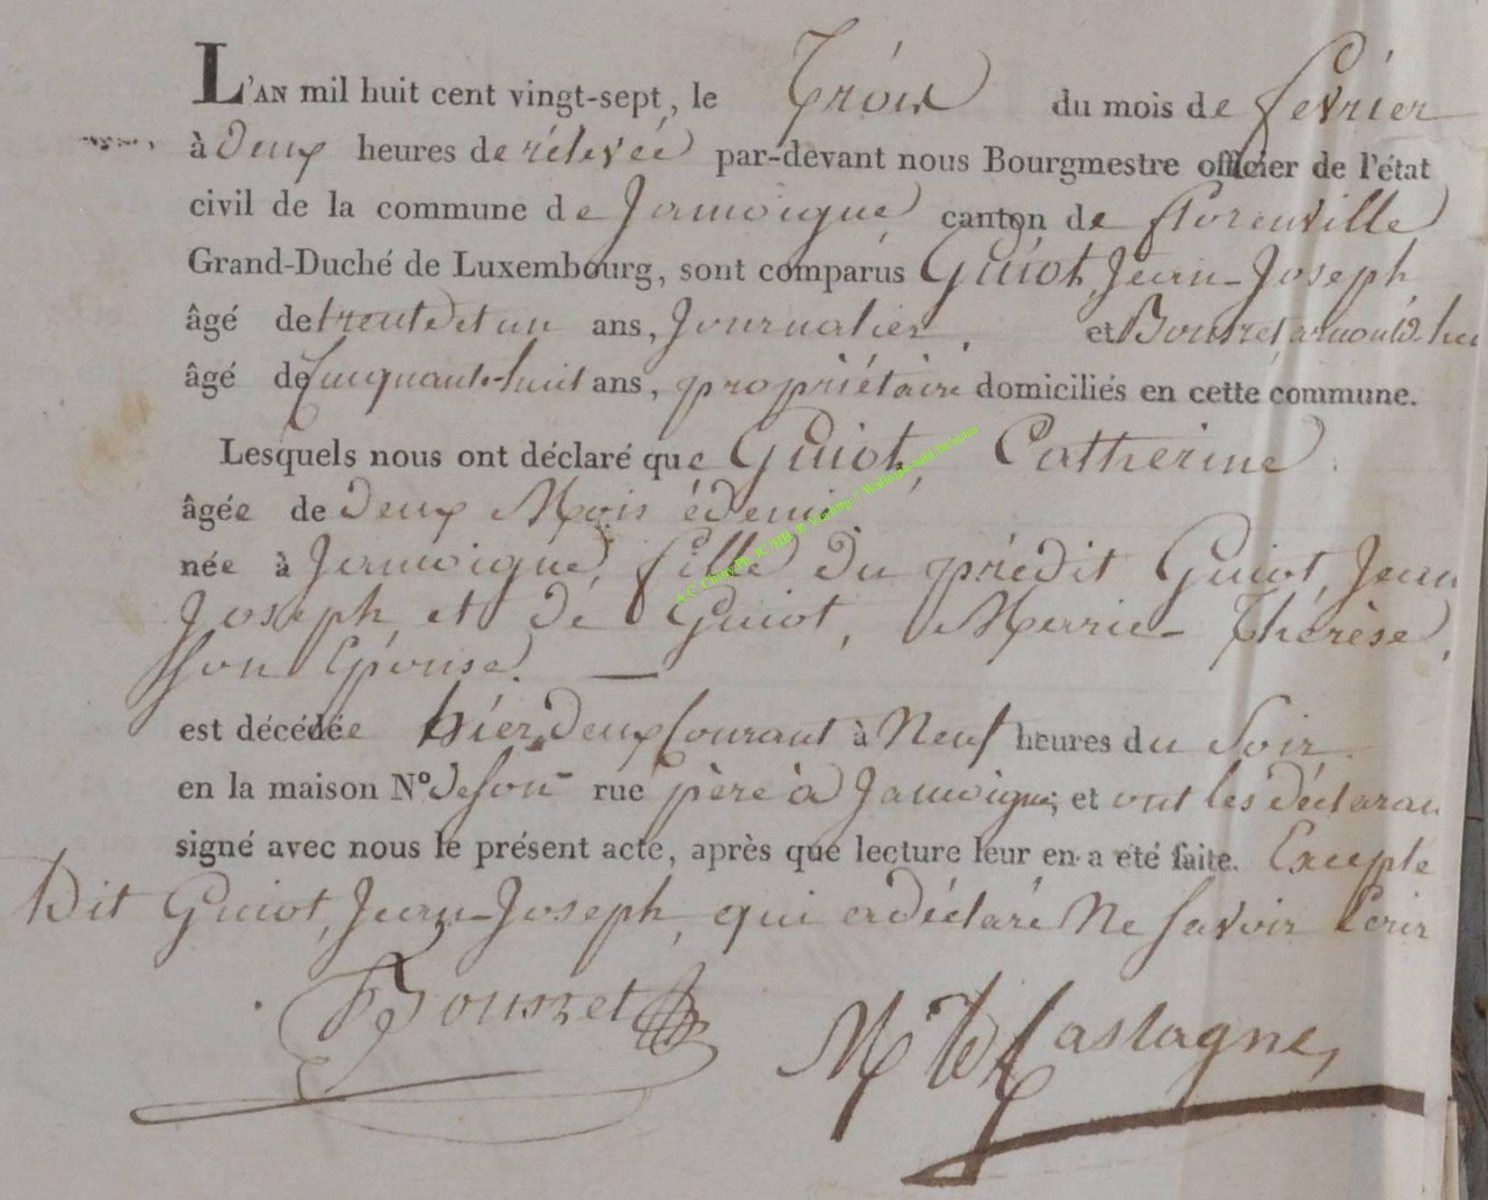 L'AN mil huit cent vingt-sept, le Trois du mois de fevrier
à deux heures de rélevée par-devant nous Bourgmestre officier de l'état
civil de la commune de Jamoigne canton de florenville
Grand-Duché de Luxembourg, sont comparus Guiot, Jean-Joseph
âgé de trente et un ans, Journalier, et Bousret, arnould
âgé de Cinquante-huit ans, propriétaire domiciliés en cette commune.
Lesquels nous ont déclaré que Guiot, Catherine
âgée de deux Mois édemi
née à Jamoigne, fille du prédit Guiot, Jean
Joseph et dé Guiot, Marie-Thérèse,
son Epouse. —
est décédée hier, deux Courant à Neuf heures du Soir
en la maison N° de son rue père à Jamoigne; et ont les déclaran
signé avec nous le présent acte, après que lecture leur en a été faite. Excepté
Dit Guiot, Jean-Joseph, qui a déclaré Ne Savoir Ecrir
Bousret M Castagne,